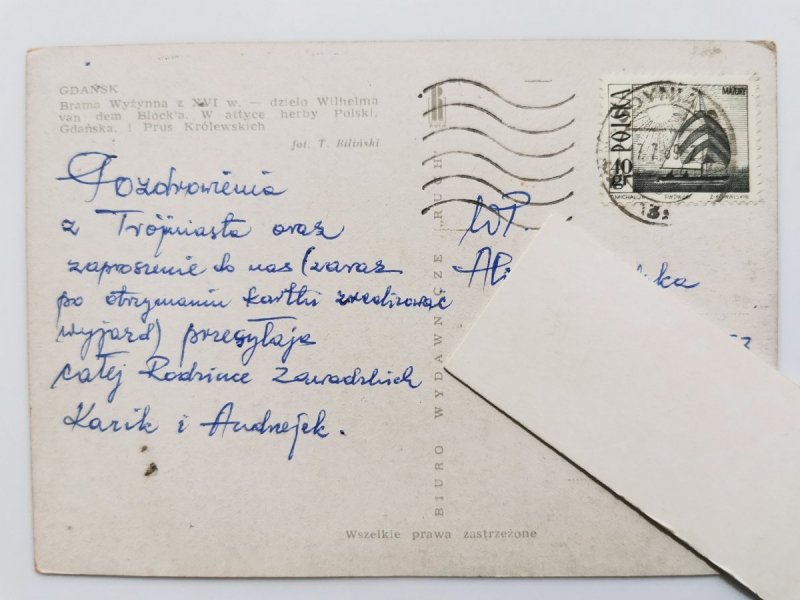 GDAŃSK
Brama Wyżynna z XVI w. — dzieło Wilhelma
van dem Block'a. W attyce herby Polski,
Gdańska, i Prus Królewskich
fot. T. Biliński
Pozdrowienia
z Trójmiasta oraz
zaproszenie do nas (zaraz
po otrzymaniu kartki zrealizować
wyjazd) przesyłają
całej Rodzince Zawadzkich
Kazik i Andrzejek.
BIURO WYDAWNICZE „RUCH"
Wszelkie prawa zastrzeżone
WP.
POLSKA
40 gr
MAZURY
GDYNIA